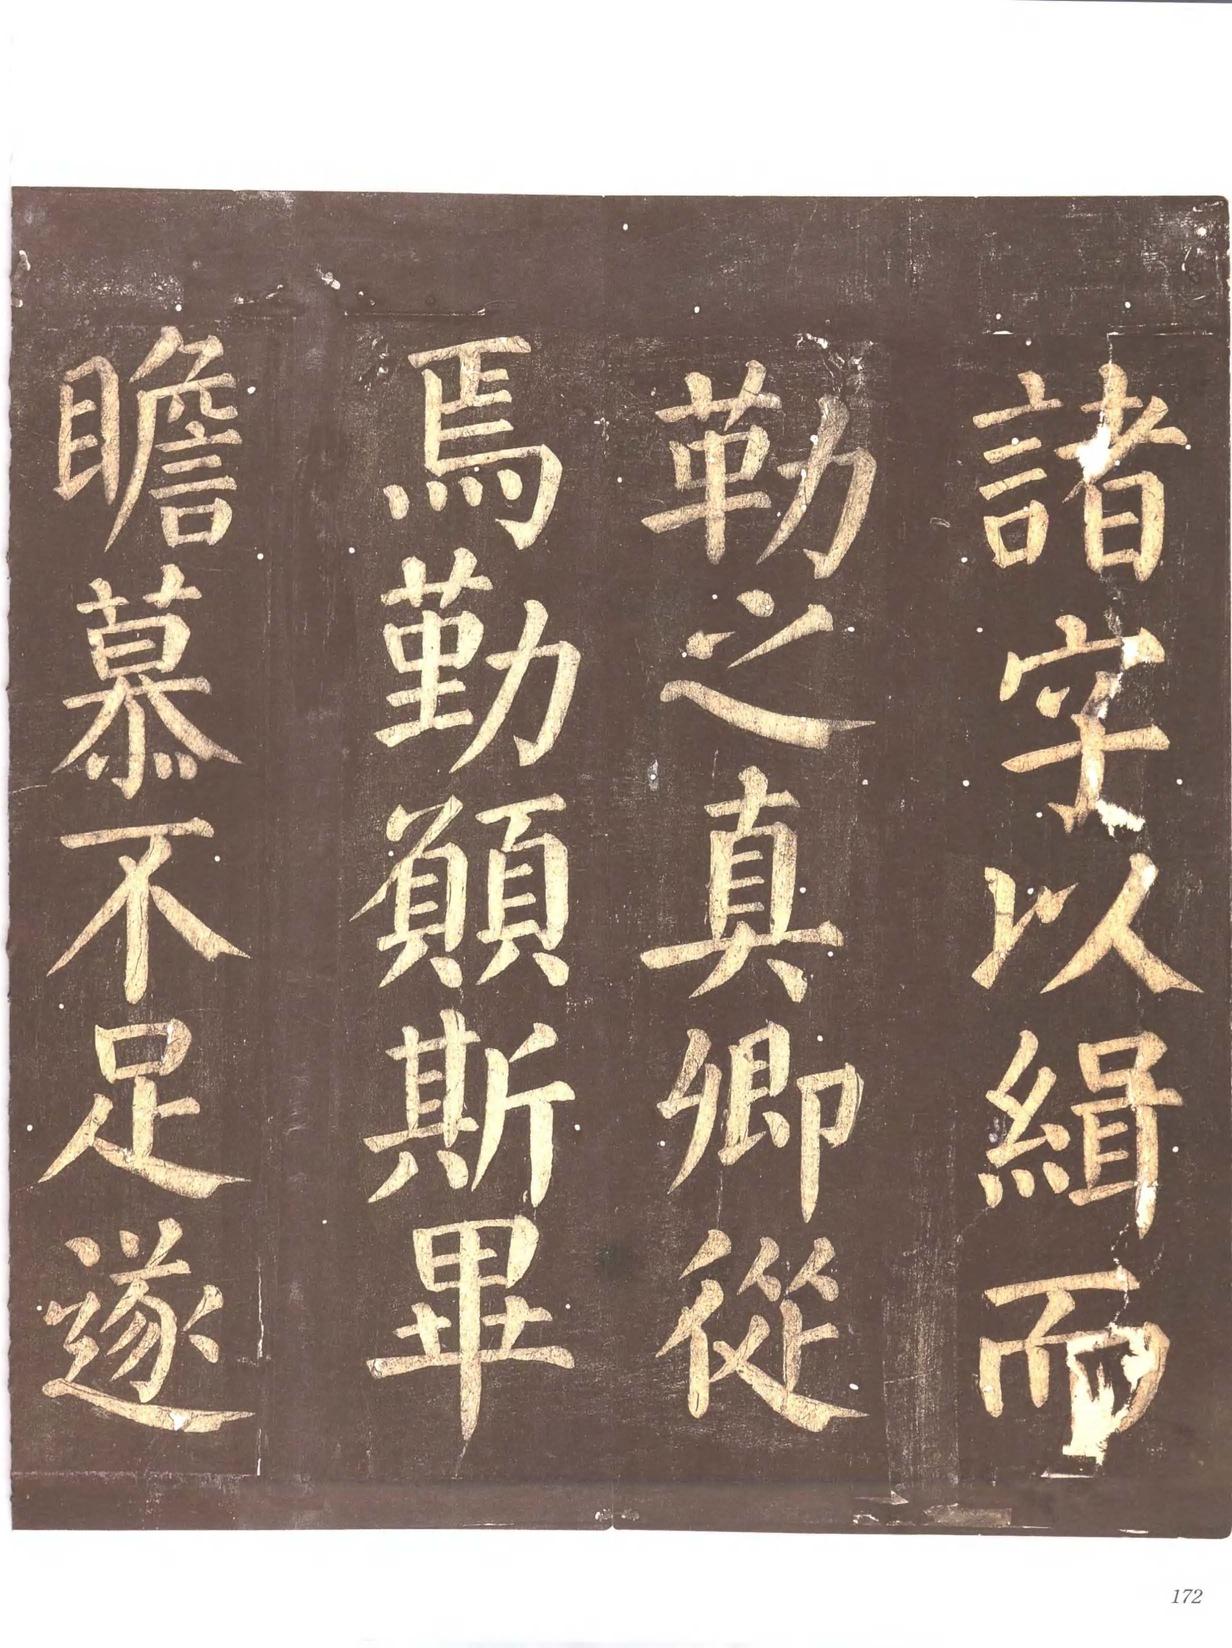 諸字以緝而
勒之真卿從
焉勤願斯畢
瞻慕不足遂
172